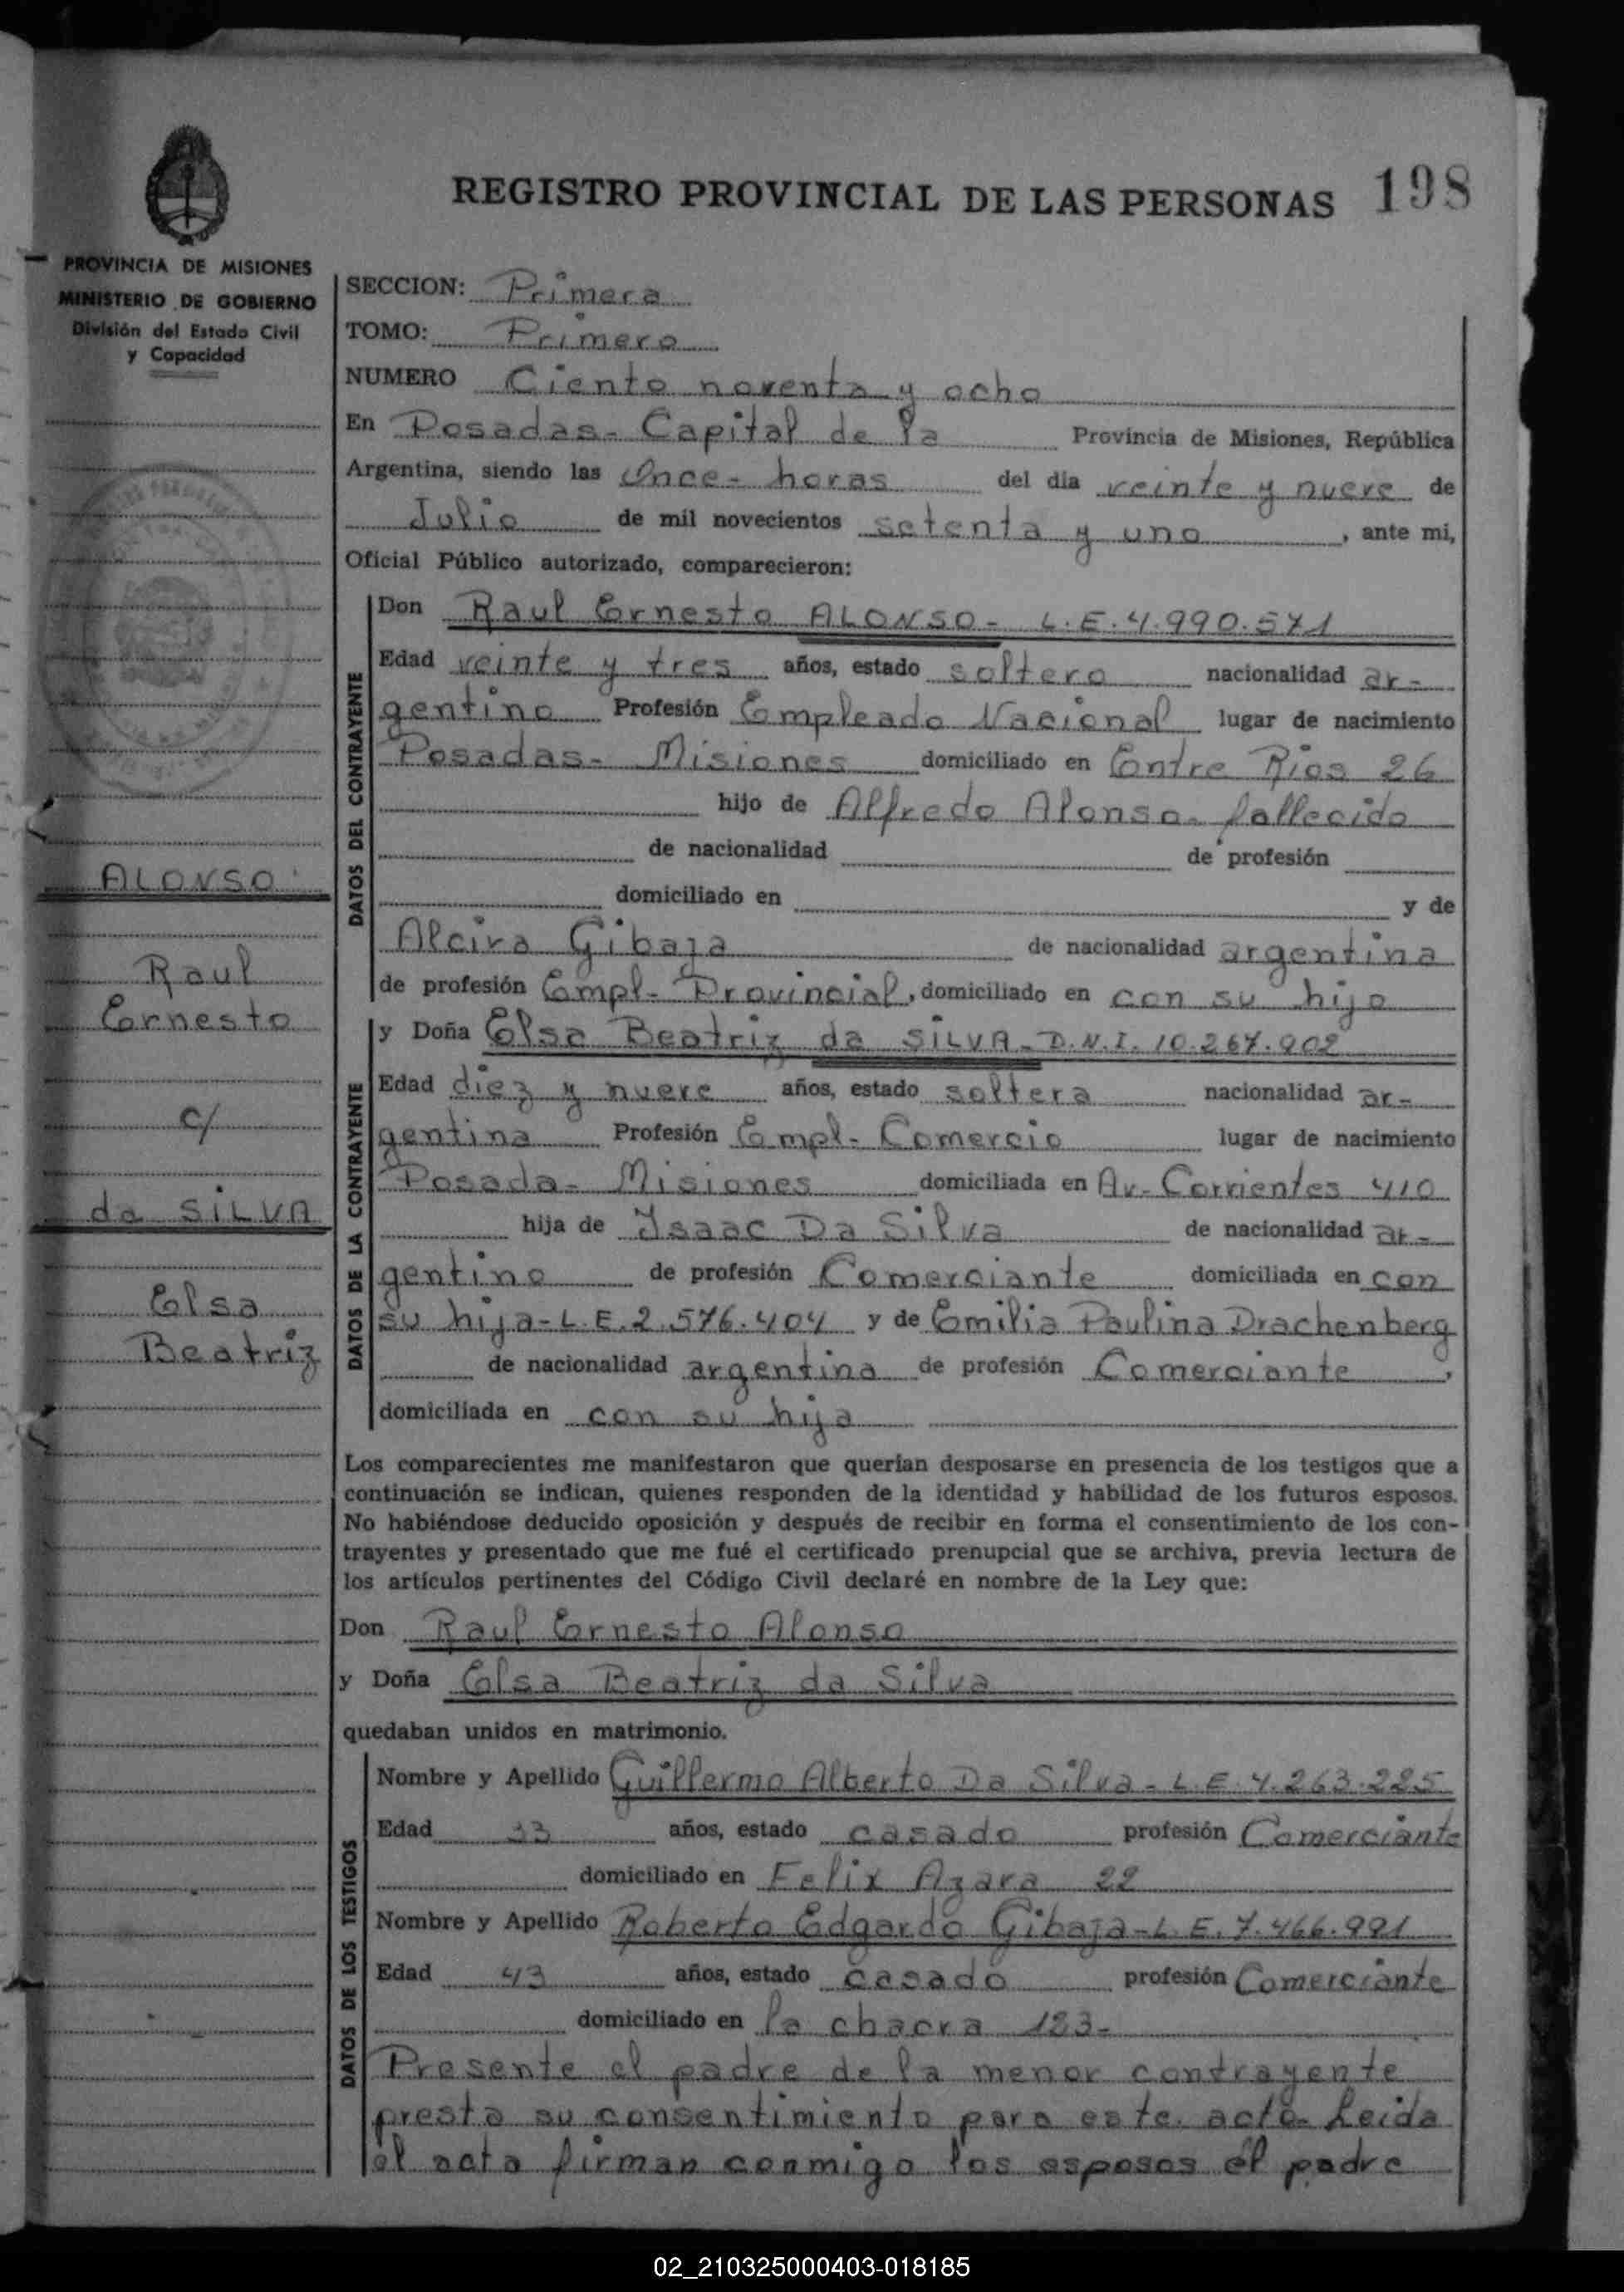 REGISTRO PROVINCIAL DE LAS PERSONAS 198
PROVINCIA DE MISIONES
MINISTERIO DE GOBIERNO
División del Estado Civil
y Capacidad
ALONSO
Raul
Ernesto
c/
da SILVA
Elsa
Beatriz
SECCION: Primera
TOMO: Primero
NUMERO Ciento noventa y ocho
En Posadas- Capital de la Provincia de Misiones, República
Argentina, siendo las Once- horas del día veinte y nueve de
Julio de mil novecientos setenta y uno, ante mi,
Oficial Público autorizado, comparecieron:
DATOS DEL CONTRAYENTE
Don Raul Ernesto ALONSO- L.E. 4.990.571
Edad veinte y tres años, estado soltero nacionalidad ar-
gentino Profesión Empleado Nacional lugar de nacimiento
Posadas- Misiones domiciliado en Entre Rios 26
hijo de Alfredo Alonso- fallecido
de nacionalidad de profesión
domiciliado en y de
Alcira Gibaja de nacionalidad argentina
de profesión Empl- Provincial, domiciliado en con su hijo
DATOS DE LA CONTRAYENTE
y Doña Elsa Beatriz da SILVA- D.N.I. 10.267.902
Edad diez y nueve años, estado soltera nacionalidad ar-
gentina Profesión Empl- Comercio lugar de nacimiento
Posada- Misiones domiciliada en Av- Corrientes 410
hija de Isaac Da Silva de nacionalidad ar-
gentino de profesión Comerciante domiciliada en con
su hija- L.E. 2.576.404 y de Emilia Paulina Drachenberg
de nacionalidad argentina de profesión Comerciante,
domiciliada en con su hija
Los comparecientes me manifestaron que querían desposarse en presencia de los testigos que a
continuación se indican, quienes responden de la identidad y habilidad de los futuros esposos.
No habiéndose deducido oposición y después de recibir en forma el consentimiento de los con-
trayentes y presentado que me fué el certificado prenupcial que se archiva, previa lectura de
los artículos pertinentes del Código Civil declaré en nombre de la Ley que:
Don Raul Ernesto Alonso
y Doña Elsa Beatriz da Silva
quedaban unidos en matrimonio.
DATOS DE LOS TESTIGOS
Nombre y Apellido Guillermo Alberto Da Silva- L.E. 4.263.225
Edad 33 años, estado casado profesión Comerciante
domiciliado en Felix Azara 22
Nombre y Apellido Roberto Edgardo Gibaja- L.E. 7.466.991
Edad 43 años, estado casado profesión Comerciante
domiciliado en la chacra 183-
Presente el padre de la menor contrayente
presta su consentimiento para este acto- Leida
el acta firman conmigo los esposos el padre
02_210325000403-018185